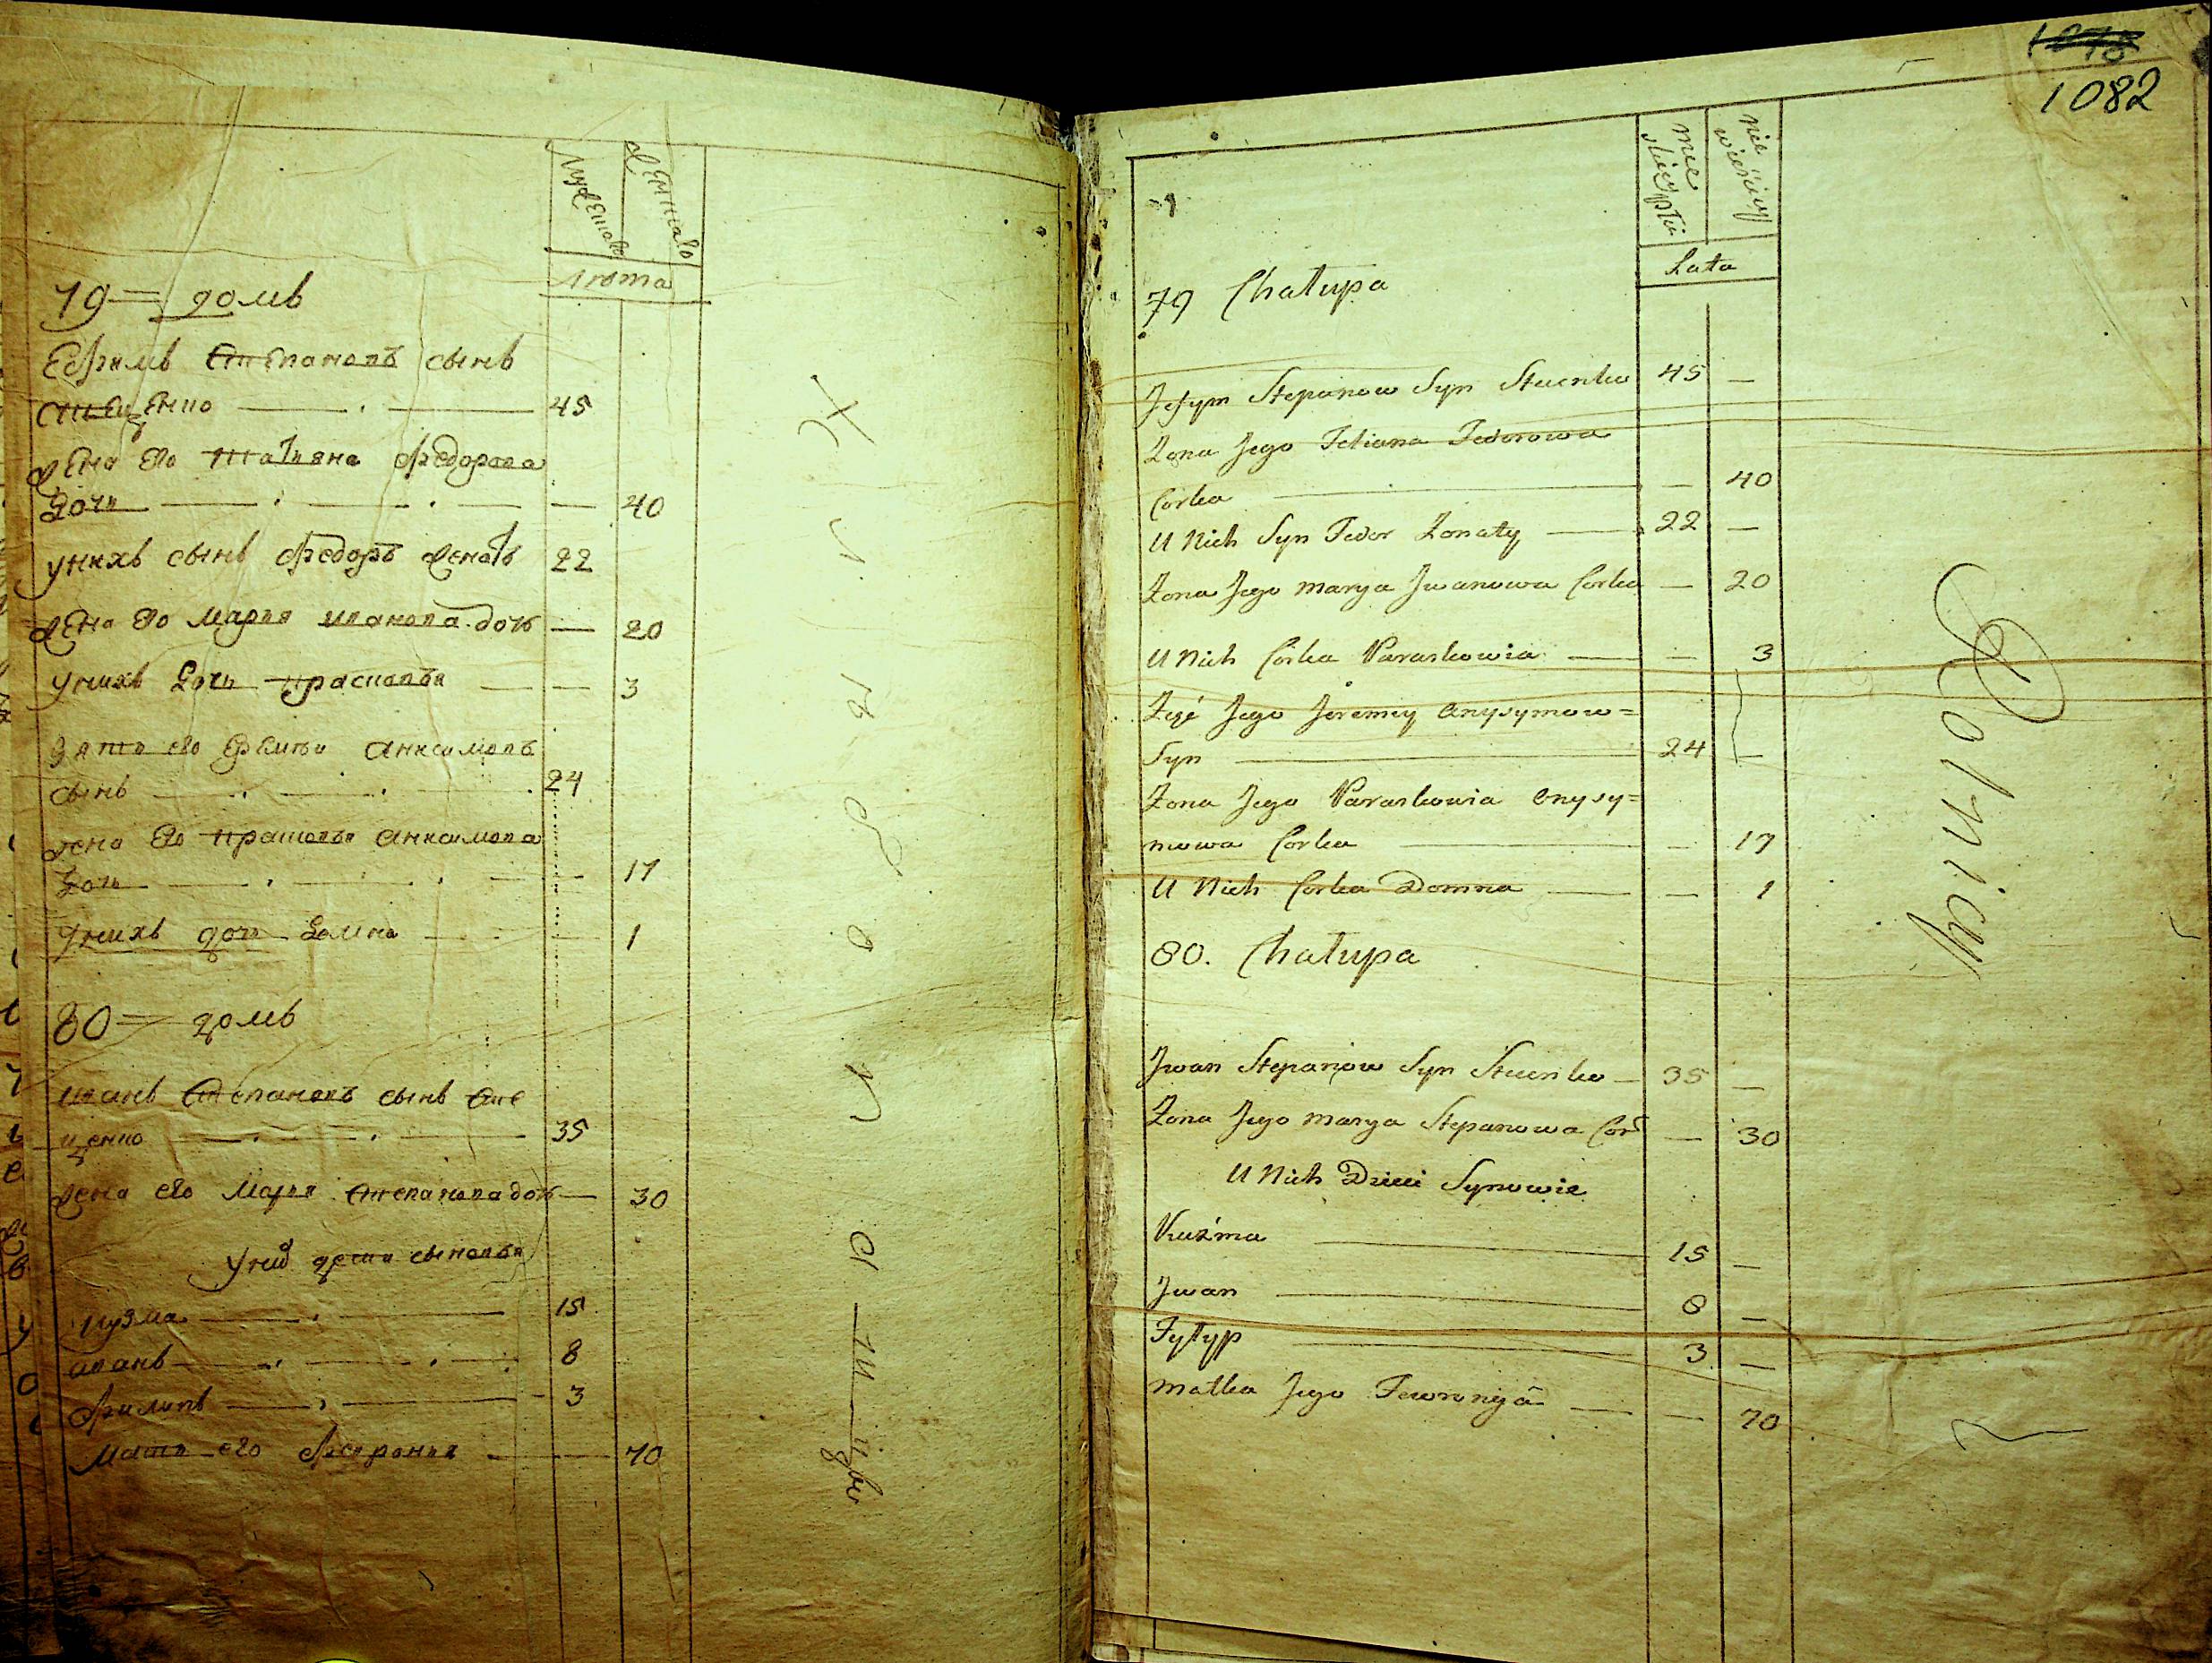 мужеска
женскаго
лѣта
79 = домъ
Ефимъ Степановъ сынъ
Стеценко 45
жена его татьяна федорова
дочь — 40
унихъ сынъ федоръ женатъ 22
жена его марья иванова дочь — 20
унихъ дочь прасковья — 3
зять его Еремѣй Анисимовъ
сынъ 24
жена его прасковья анисимова
дочь — 17
унихъ дочь домна — 1
80 = домъ
иванъ Степановъ сынъ Сте
ценко 35
жена его Марья Степанова дочь — 30
уних дети сыновья
кузма 15
иванъ 8
филипъ 3
Мать его Феврония — 70
1078
1082
męskiey płci
niewieściey
Lata
79 Chałupa
Jefym Stepanow Syn Stecenko 45 —
Zona Jego Tetiana Fedorowa
Corka — 40
U Nich Syn Fedor Zonaty 22 —
Zona Jego Marya Jwanowa Corka — 20
U Nich Córka Paraskowia — 3
Zięć Jego Jeremiy Onysymow=
Syn 24 —
Zona Jego Paraskowia Onysy=
mowa Corka — 17
U Nich Corka Domna — 1
80. Chałupa
Jwan Stepanow Syn Stecenko 35 —
Zona Jego Marya Stepanowa Cor — 30
U Nich Dzieci Synowie
Kuźma 15 —
Jwan 8 —
Fyłyp 3 —
Matka Jego Fewronyia — 70
Rolnicy